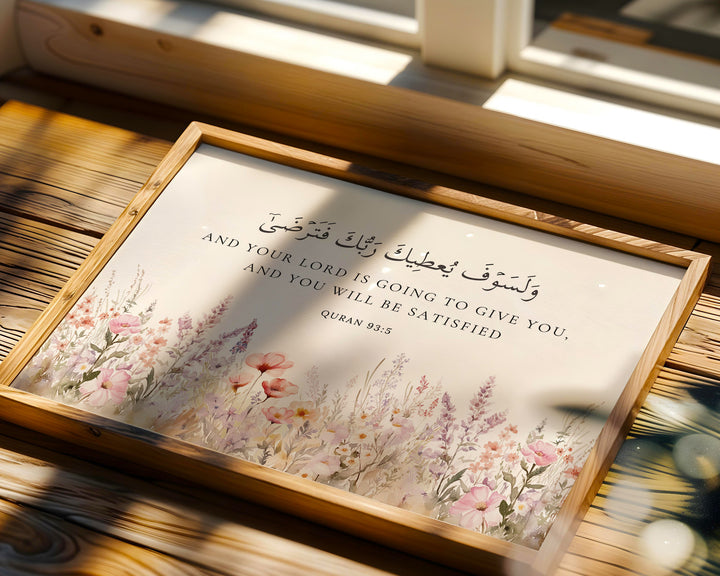 وَلَسَوْفَ يُعْطِيكَ رَبُّكَ فَتَرْضَىٰ
AND YOUR LORD IS GOING TO GIVE YOU,
AND YOU WILL BE SATISFIED
QURAN 93:5